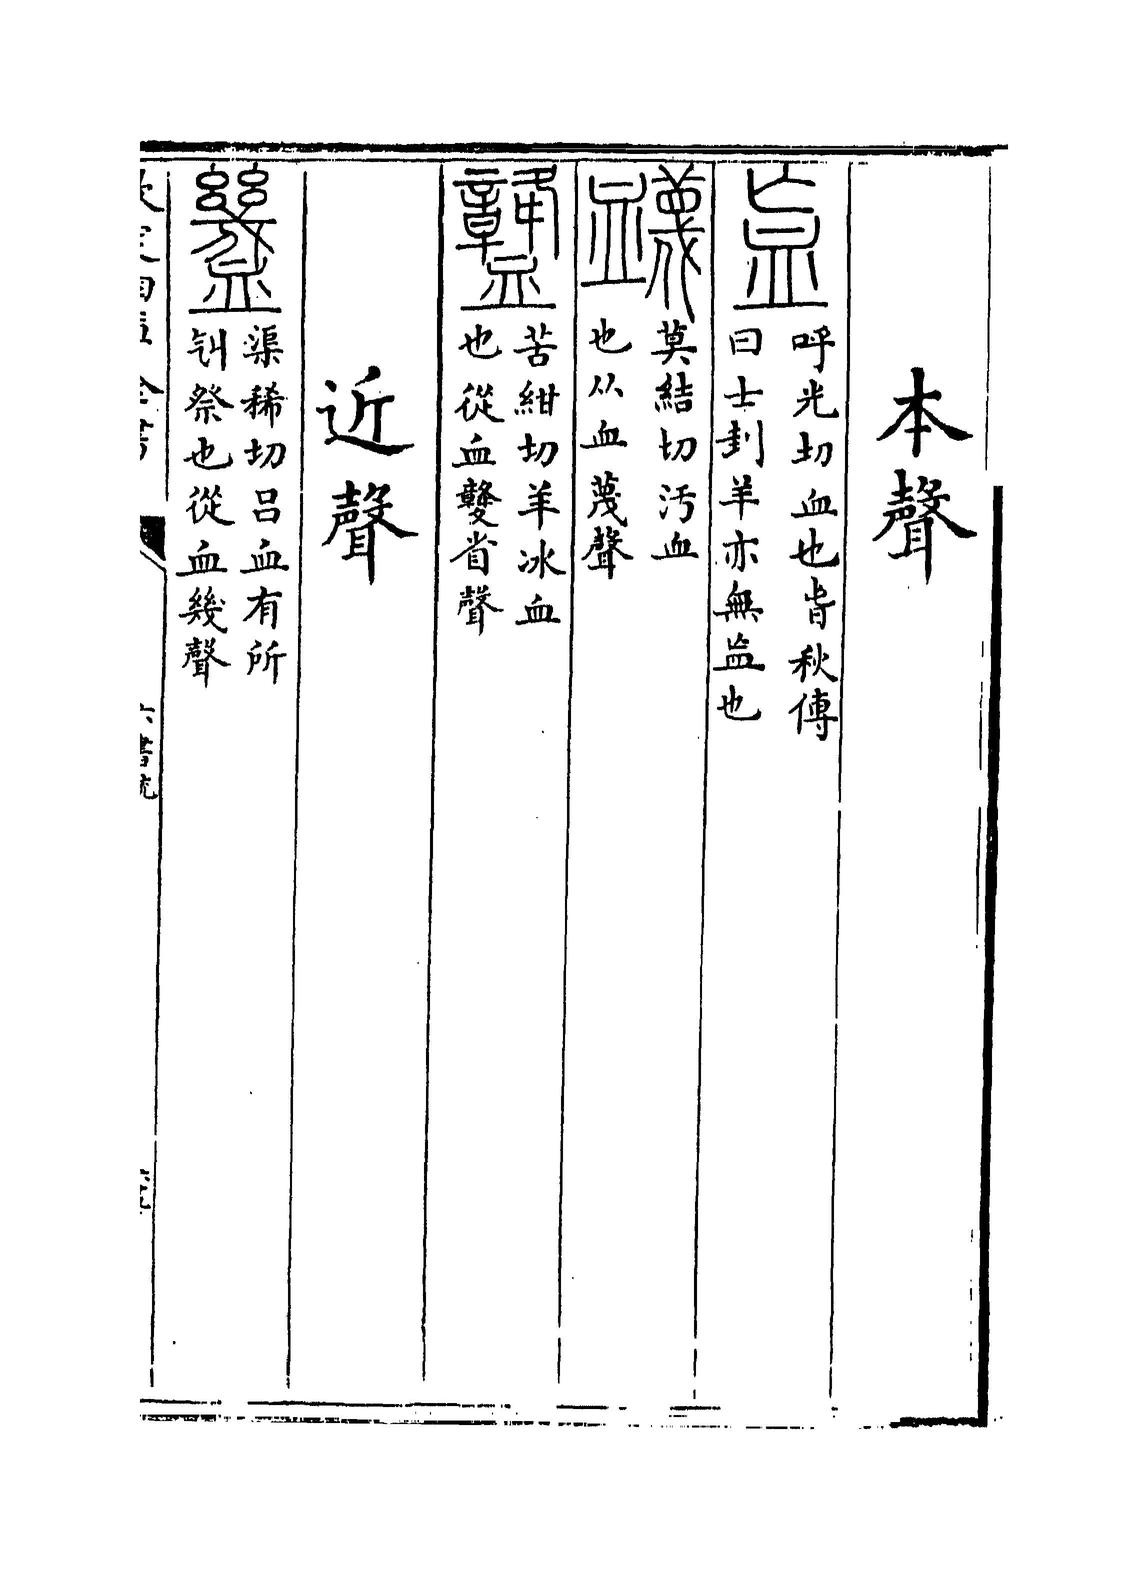 本聲
呼光切血也旹秋傳
曰士刲羊亦無衁也
莫結切汚血
也从血蔑聲
苦紺切羊冰血
也從血聲省聲
近聲
渠稀切吕血有所
刉祭也從血幾聲
六書統